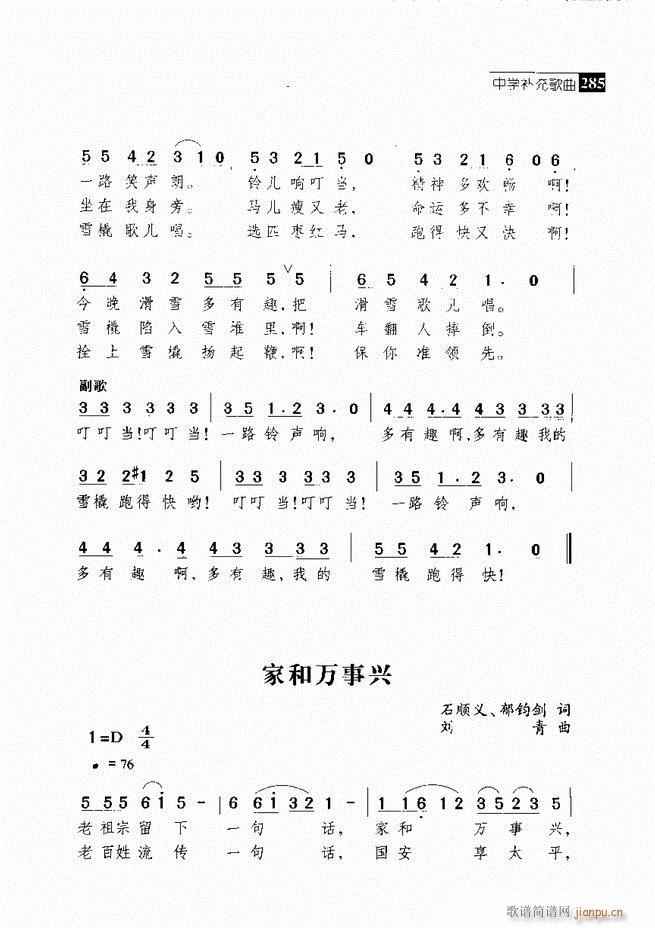 中学补充歌曲 285
5 5 4 2 3 1 0 5 3 2 1 5 0 5 3 2 1 6 0 6
一路笑声朗。 铃儿响叮当, 精神多欢畅 啊!
坐在我身旁。 马儿瘦又老, 命运多不幸 啊!
雪橇歌儿唱。 选匹枣红马, 跑得快又快 啊!
6 4 3 2 5 5 5 5 6 5 4 2 1 · 0
今晚滑雪多有趣,把 滑雪歌儿唱。
雪橇陷入雪堆里,啊! 车翻人摔倒。
拴上雪橇扬起鞭,啊! 保你准领先。
副歌
3 3 3 3 3 3 | 3 5 1 · 2 3 · 0 | 4 4 4 · 4 4 3 3 3 3
叮叮当!叮叮当! 一路铃声响, 多有趣啊,多有趣我的
3 2 2 #1 2 5 | 3 3 3 3 3 3 | 3 5 1 · 2 3 · 0
雪橇跑得快哟! 叮叮当!叮叮当! 一路铃声响,
4 4 4 · 4 4 3 3 3 3 | 5 5 4 2 1 · 0
多有趣 啊,多有趣,我的 雪橇跑得快!
家和万事兴
石顺义、郁钧剑 词
刘 青 曲
1=D 4/4
= 76
5 5 5 6 i 5 - | 6 6 i 3 2 1 - | 1 1 6 1 2 3 5 2 3 5
老祖宗留下 一句 话, 家和 万事兴,
老百姓流传 一句 话, 国安 享太平,
歌谱简谱网
jianpu.cn